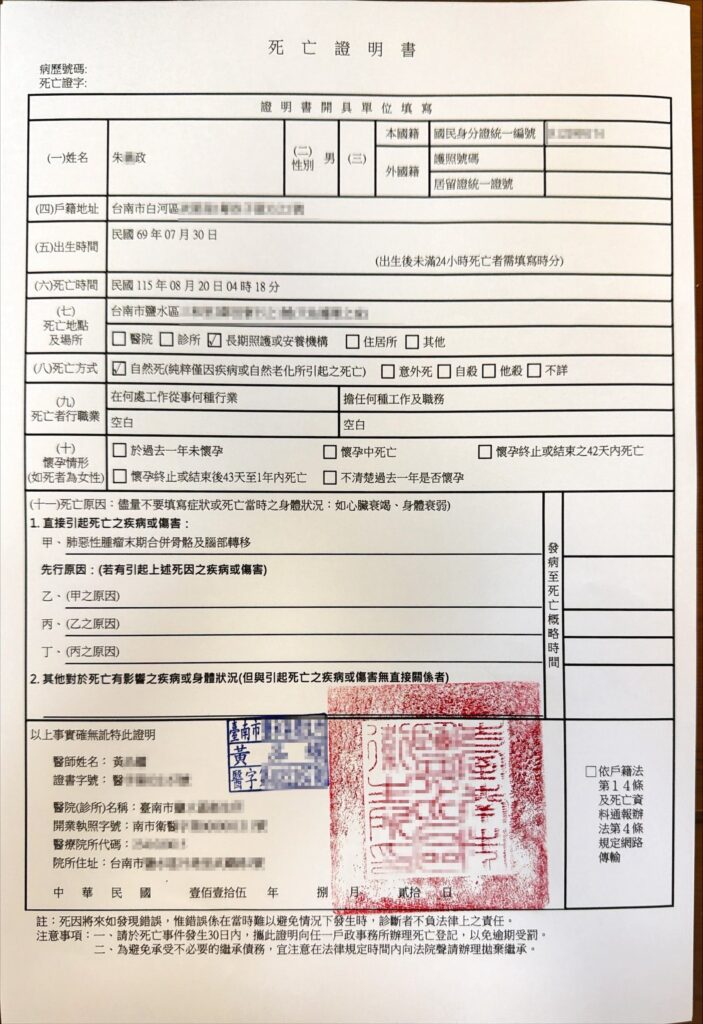 死亡證明書
病歷號碼:
死亡證字:
證明書開具單位填寫
(一)姓名 朱 政 (二)性別 男 (三) 本國籍 國民身分證統一編號
外國籍 護照號碼
居留證統一證號
(四)戶籍地址 台南市白河區
(五)出生時間 民國 69 年 07 月 30 日
(出生後未滿24小時死亡者需填寫時分)
(六)死亡時間 民國 115 年 08 月 20 日 04 時 18 分
(七)死亡地點及場所 台南市鹽水區
☐醫院 ☐診所 ☑長期照護或安養機構 ☐住居所 ☐其他
(八)死亡方式 ☑自然死(純粹僅因疾病或自然老化所引起之死亡) ☐意外死 ☐自殺 ☐他殺 ☐不詳
(九)死亡者行職業 在何處工作從事何種行業 擔任何種工作及職務
空白 空白
(十)懷孕情形(如死者為女性) ☐於過去一年未懷孕 ☐懷孕中死亡 ☐懷孕終止或結束之42天內死亡
☐懷孕終止或結束後43天至1年內死亡 ☐不清楚過去一年是否懷孕
(十一)死亡原因：儘量不要填寫症狀或死亡當時之身體狀況：如心臟衰竭、身體衰弱)
1. 直接引起死亡之疾病或傷害：
甲、肺惡性腫瘤末期合併骨骼及腦部轉移
先行原因：(若有引起上述死因之疾病或傷害)
乙、(甲之原因)
丙、(乙之原因)
丁、(丙之原因)
發病至死亡概略時間
2. 其他對於死亡有影響之疾病或身體狀況(但與引起死亡之疾病或傷害無直接關係者)
以上事實確無訛特此證明
臺南市
黃
醫字
醫師姓名：黃
證書字號：醫
醫院(診所)名稱：臺南市
開業執照字號：南市衛醫
醫療院所代碼：
院所住址：台南市
中華民國 壹佰壹拾伍 年 捌 月 貳拾 日
☐依戶籍法
第14條
及死亡資
料通報辦
法第4條
規定網路
傳輸
註：死因將來如發現錯誤，惟錯誤係在當時難以避免情況下發生時，診斷者不負法律上之責任。
注意事項：一、請於死亡事件發生30日內，攜此證明向任一戶政事務所辦理死亡登記，以免逾期受罰。
二、為避免承受不必要的繼承債務，宜注意在法律規定時間內向法院聲請辦理拋棄繼承。